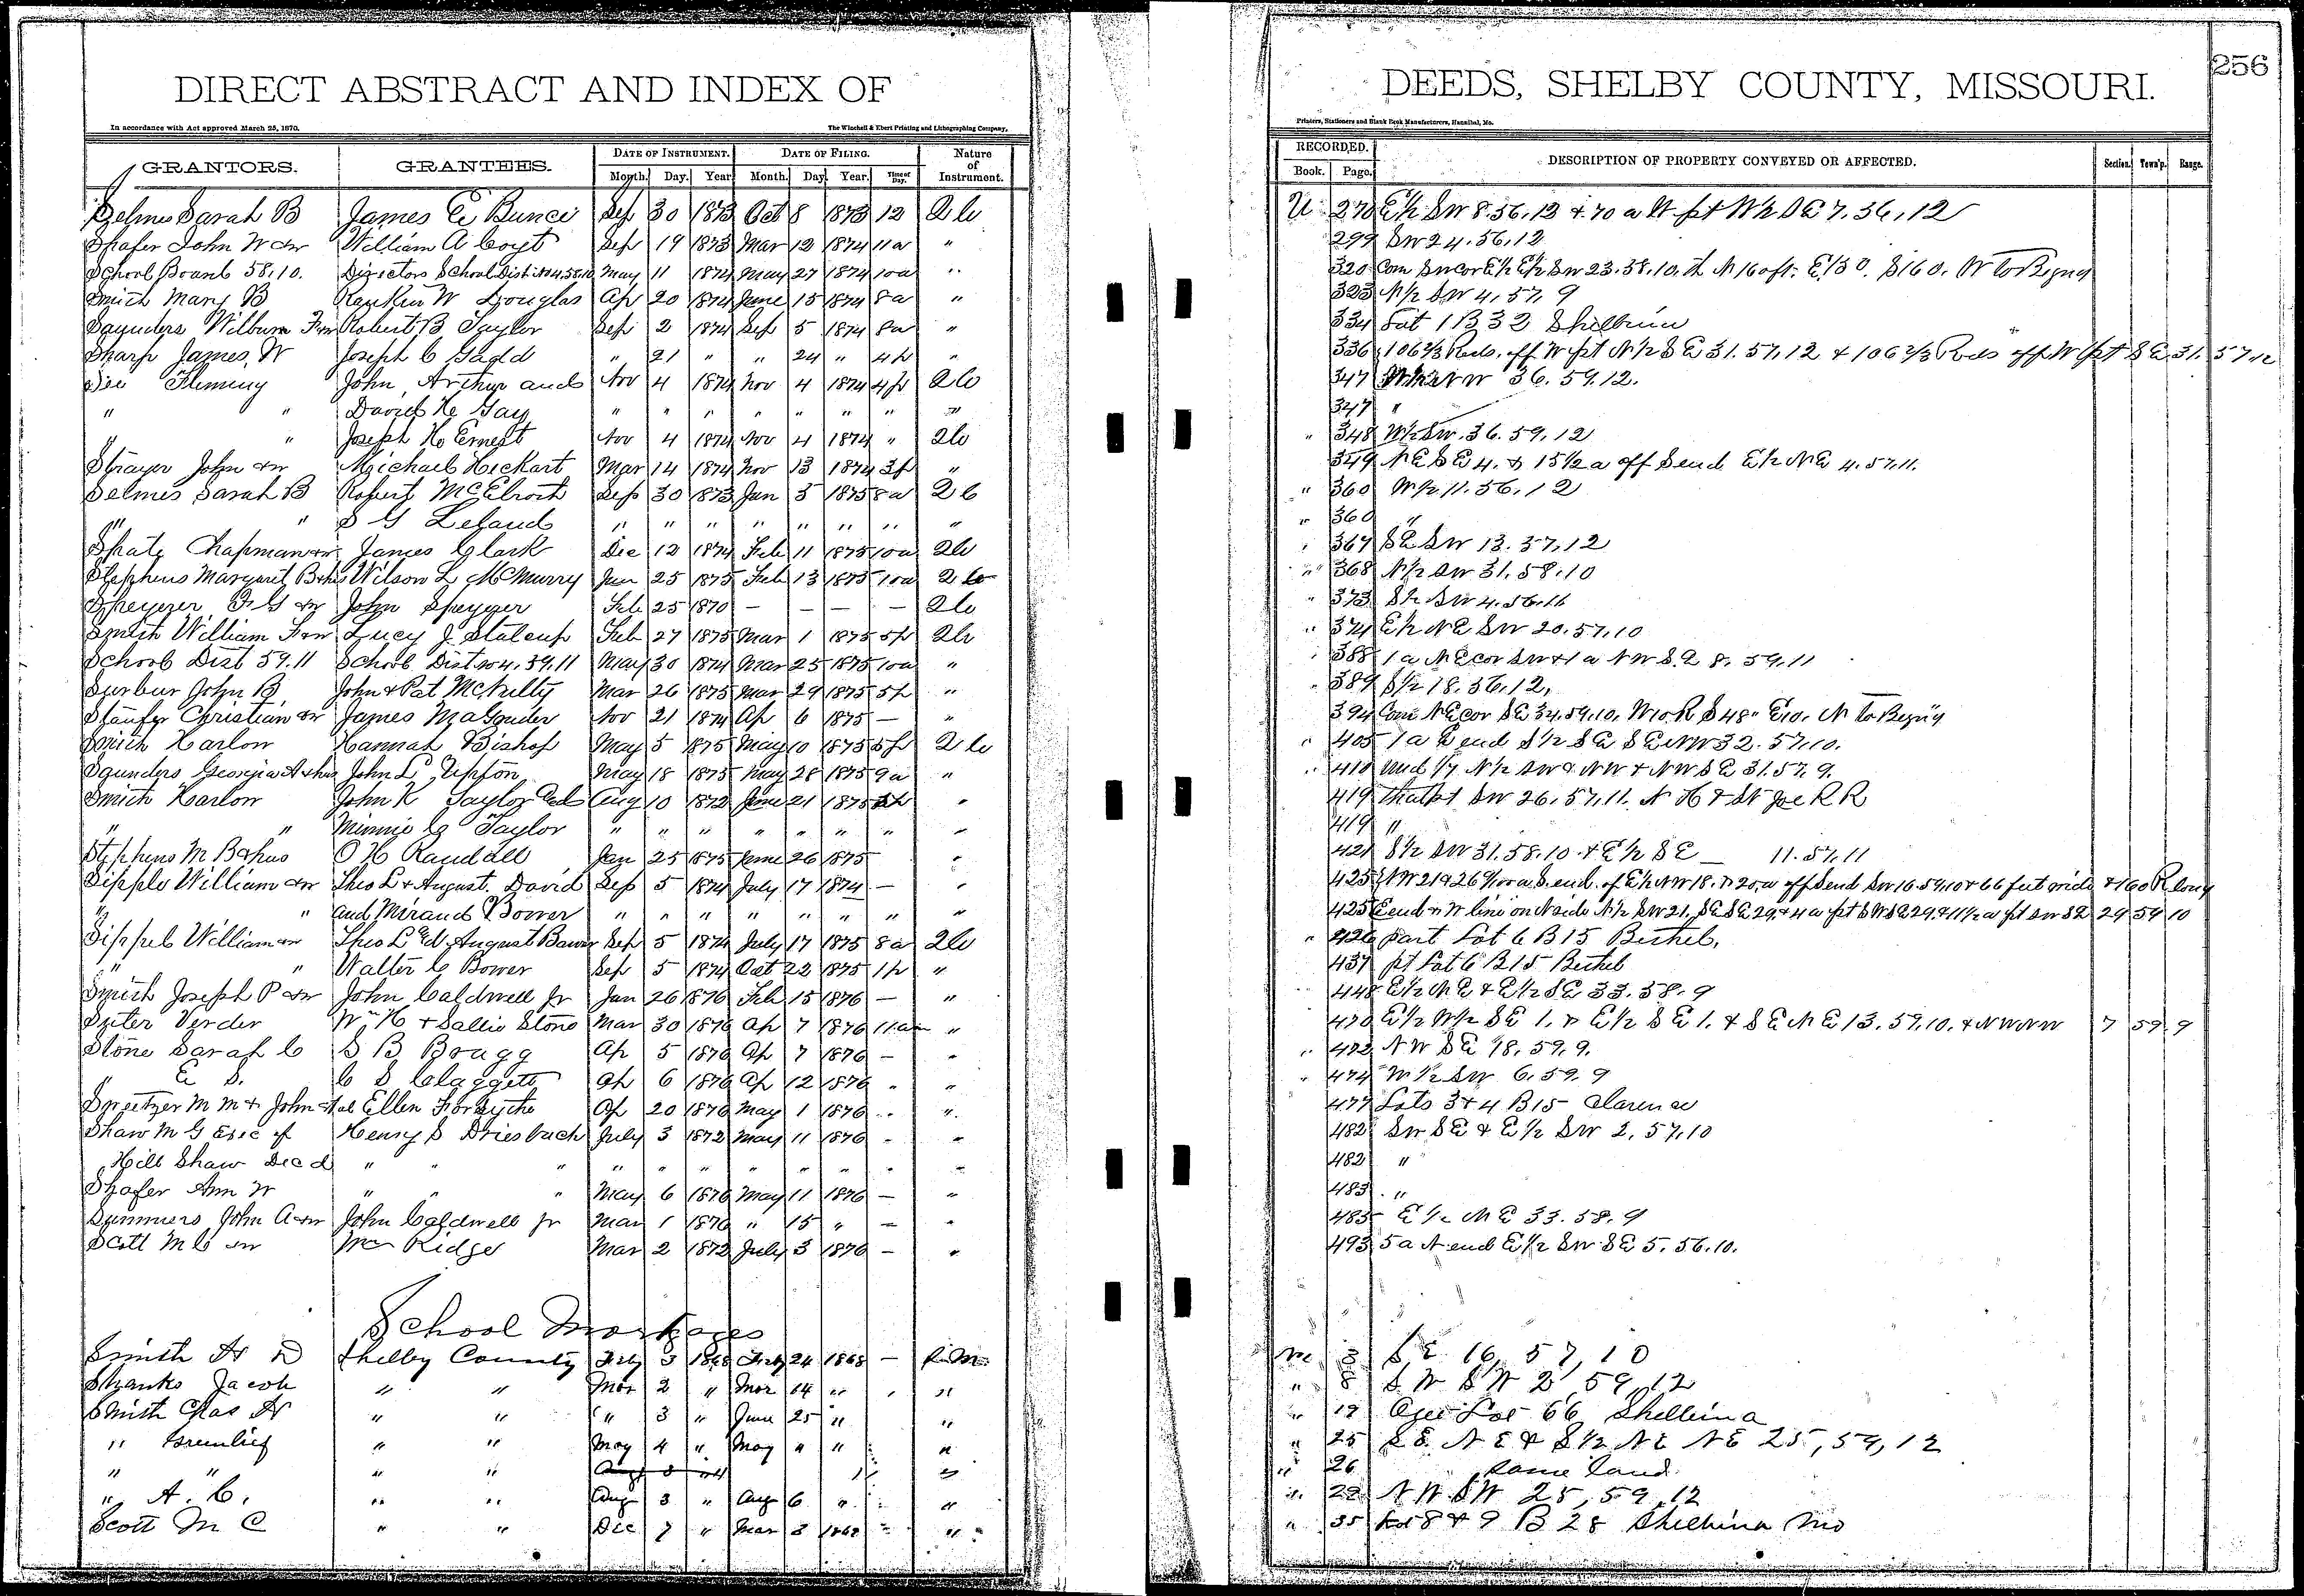 DIRECT ABSTRACT AND INDEX OF
In accordance with Act approved March 25, 1870.
The Winchell & Ebert Printing and Lithographing Company,
GRANTORS. GRANTEES. DATE OF INSTRUMENT. DATE OF FILING. Nature of Instrument.
Month. Day. Year Month. Day. Year. Time of Day.
Selmes Sarah B James E Bunce Sep 30 1873 Oct 8 1873 12
Shafer John W &w William A Coyt Sep 19 1873 Mar 12 1874 11a "
School Board 58.10. Directors School Dist No 4.58.10 May 11 1874 May 27 1874 10a "
Smith Mary B Rankin W Douglas Ap 20 1874 June 15 1874 8a "
Saunders Wilburn F &w Robert B Taylor Sep 2 1874 Sep 5 1874 8a "
Sharp James W Joseph C Gadd " 21 " " 24 " 4p "
See Fleming John Arthur and Nov 4 1874 Nov 4 1874 4p
" " David H Gay " " " " " " " "
" " Joseph H Ernest Nov 4 1874 Nov 4 1874 "
Strayer John &w Michael Heckart Mar 14 1874 Nov 13 1874 3p "
Selmes Sarah B Robert McElroth Sep 30 1873 Jan 5 1875 8a
" " S G Leland " " " " " " " "
Skate Chapman &w James Clark Dec 12 1874 Feb 11 1875 10a
Stephens Margaret B &hus Wilson L McMurry Jan 25 1875 Feb 13 1875 10a
Speyger F G &w John Speyger Feb 25 1870 — — — —
Smith William F &w Lucy J Stalcup Feb 27 1875 Mar 1 1875 5p
School Dist 59.11 School Dist No 4.59.11 May 30 1874 Mar 25 1875 10a "
Surbur John B John & Pat McNelly Mar 26 1875 Mar 29 1875 5p "
Staufer Christian &w James Magruder Nov 21 1874 Ap 6 1875 — "
Smith Harlow Hannah Bishop May 5 1875 May 10 1875 5p
Saunders Georgia A &hus John L Upton May 18 1875 May 28 1875 9a "
Smith Harlow John K Taylor and Aug 10 1872 June 21 1875 "
" " Minnie C Taylor " " " " " " " "
Stephens M B &hus O H Randall Jan 25 1875 June 26 1875 "
Sipple William &w Theo L & August. David Sep 5 1874 July 17 1874 — "
" " and Mirand Bower " " " " " " " "
Sippel William &w Theo L and August Bower Sep 5 1874 July 17 1875 8a
" " Walter C Bower Sep 5 1874 Oct 22 1875 1p "
Smith Joseph P &w John Caldwell Jr Jan 26 1876 Feb 15 1876 — "
Suter Verder Wm H & Sallie Stone Mar 30 1876 Ap 7 1876 11am "
Stone Sarah C S B Bragg Ap 5 1876 Ap 7 1876 — "
" E S. C S Claggett Ap 6 1876 Ap 12 1876 " "
Sweetzer M M & John et al Ellen Forsythe Ap 20 1876 May 1 1876 " "
Shaw M G Exec of Henry S Driesbach July 3 1872 May 11 1876 " "
Hill Shaw Decd " " " " " " " " " " "
Shafer Ann W " " " May 6 1876 May 11 1876 — "
Summers John A &w John Caldwell Jr Mar 1 1876 " 15 " — "
Scott M C &w Wm Ridge Mar 2 1872 July 3 1876 — "
School Mortgages
Smith H D Shelby County Feby 3 1868 Feby 24 1868 —
Shanks Jacob " " Mar 2 " Mar 14 " " "
Smith Chas H " " " 3 " June 25 " "
" Greenlief " " May 4 " May " " "
" " " " "
" A. C. " " Aug 3 " Aug 6 " "
Scott M C " " Dec 7 " Mar 3 1868 "
DEEDS, SHELBY COUNTY, MISSOURI.
256
Printers, Stationers and Blank Book Manufacturers, Hannibal, Mo.
RECORDED. DESCRIPTION OF PROPERTY CONVEYED OR AFFECTED. Section. Town'p. Range.
Book. Page.
U 270 E½ SW 8.56.12 & 70 a pt W½ SE 7.56,12
299 SW 24.56,12
320 Com SW cor E½ E½ SW 23.58.10. Th N 160 ft. E 130. S 160. W To Begng
323 N½ SW 4.57.9
334 Lot 1 B 32 Shelbina
336 106⅔ Rods. off W pt N½ SE 31.57.12 & 106⅔ Rods off W pt SE 31. 57.12
347 NW 36.59.12.
347 "
" 348 W½ SW. 36.59.12
349 NE SE 4. & 15½ a off S end E½ NE 4.57.11.
" 360 W½ 11.56.12
" 360 "
" 367 SE SW 13.57.12
" 368 N½ SW 31.58.10
" 373 S½ SW 4.56.11
" 374 E½ NE SW 20.57.10
" 388 1 a NE cor SW & 1 a NW SE 8.59.11
" 389 S½ 18.56.12.
394 Com NE cor SE 34.59.10. W 10 R S 48" E 10. N To Begn'g
" 405 1 a E end S½ SE SE NW 32.57.10.
" 410 Und 1/7 N½ SW & NW & NW SE 31.57.9.
419 That pt SW 26.57.11. N H & St Joe R R
419 "
421 S½ SW 31.58.10. & E½ SE — 11.57.11
425 NW 21 & 26 a S. end of E½ NW 18. & 20 a off S end SW 16.59.10 & 66 feet wide & 160 R long
425 E end & W line on N side N½ SW 21. SE SE 29. & 4 a pt SW SE 29. & 11½ a pt SW SE 29 59 10
" 426 part Lot 6 B 15 Bethel.
437 pt Lot 6 B 15 Bethel
448 E½ NE & E½ SE 33.58.9
470 E½ W½ SE 1. & E½ SE 1. & SE NE 13.59.10. & NW NW 7 59 9
" 472 NW SE 18.59.9.
" 474 W½ SW 6.59.9
477 Lots 3 & 4 B 15 Clarence
482 SW SE & E½ SW 2.57.10
482 "
483 "
485 E½ NE 33.58.9
493 5 a N end E½ SW SE 5.56.10.
3 S E 16, 57, 10
" 8 S W S W 2, 59, 12
" 19 Lot 66 Shelbina
" 25 S E N E & S½ N E N E 25, 59, 12
" 26 Same land
" 29 N W S W 25, 59, 12
" 35 Lot 8 & 9 B 28 Shelbina Mo